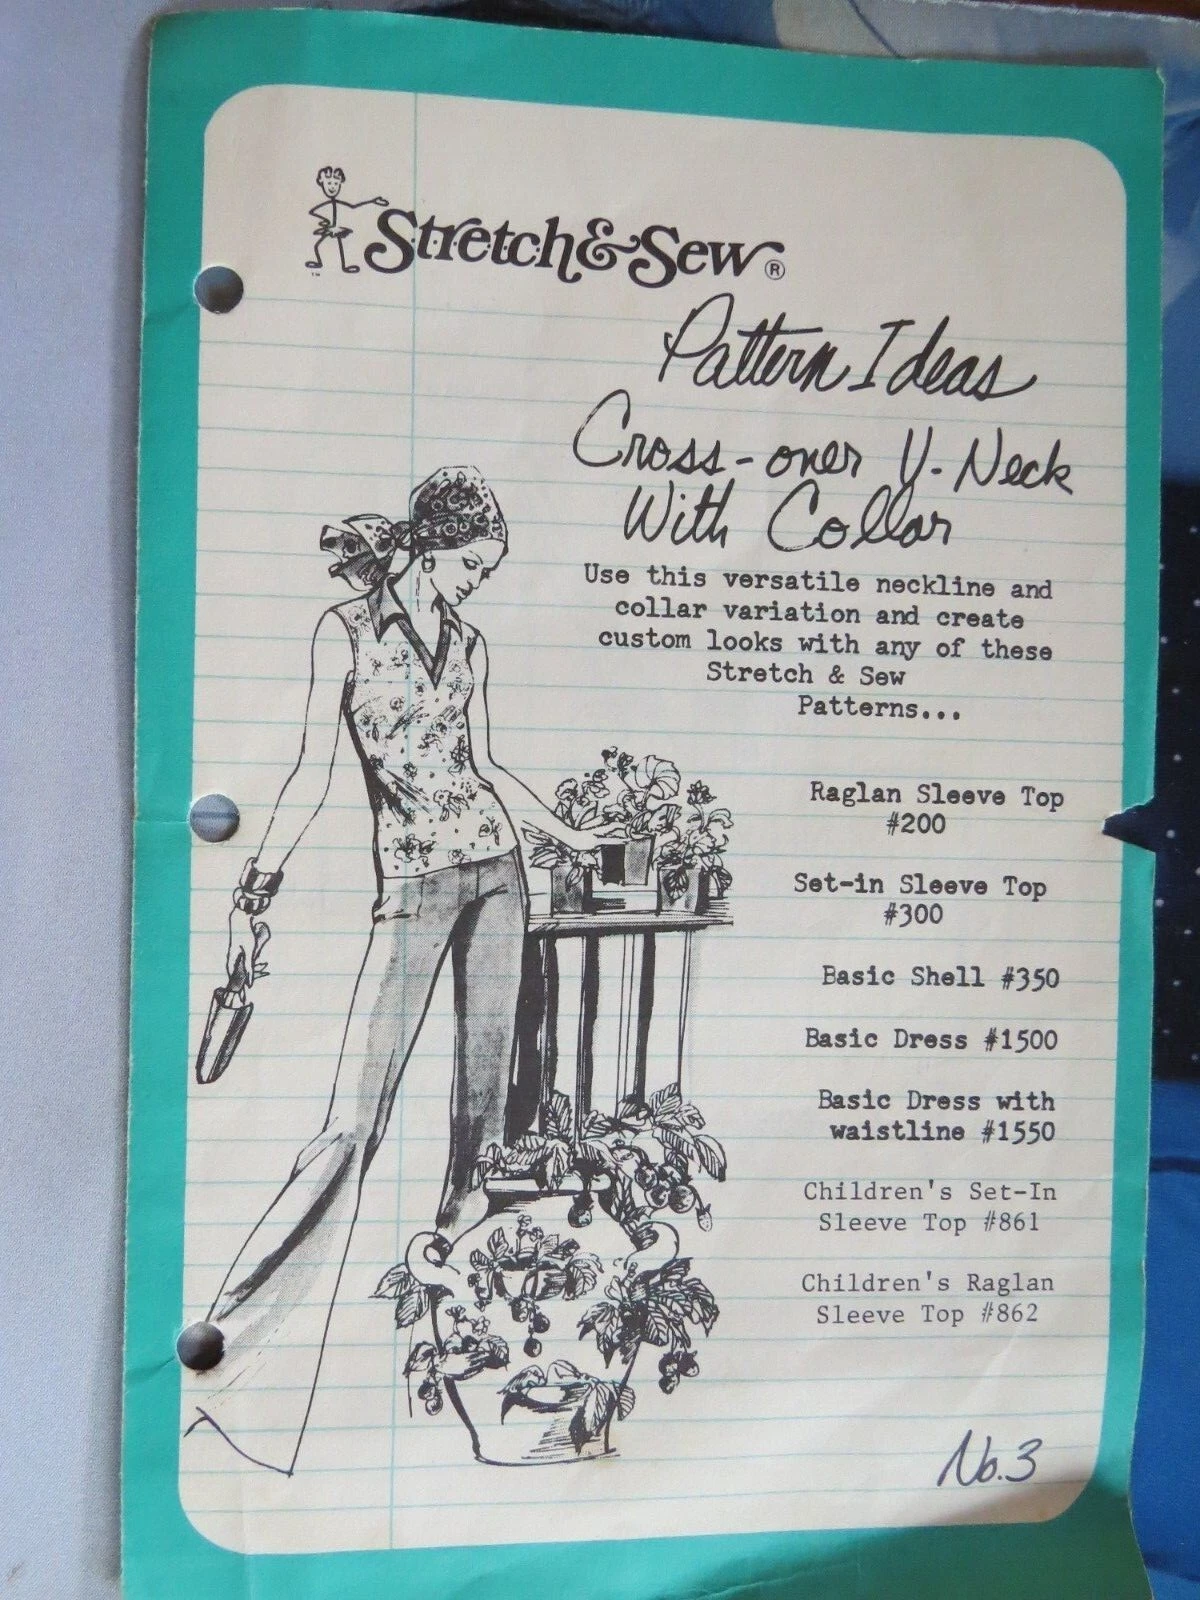 Stretch & Sew ®
™
Pattern Ideas
Cross-over V-Neck
With Collar
Use this versatile neckline and
collar variation and create
custom looks with any of these
Stretch & Sew
Patterns...
Raglan Sleeve Top
#200
Set-in Sleeve Top
#300
Basic Shell #350
Basic Dress #1500
Basic Dress with
waistline #1550
Children's Set-In
Sleeve Top #861
Children's Raglan
Sleeve Top #862
No.3